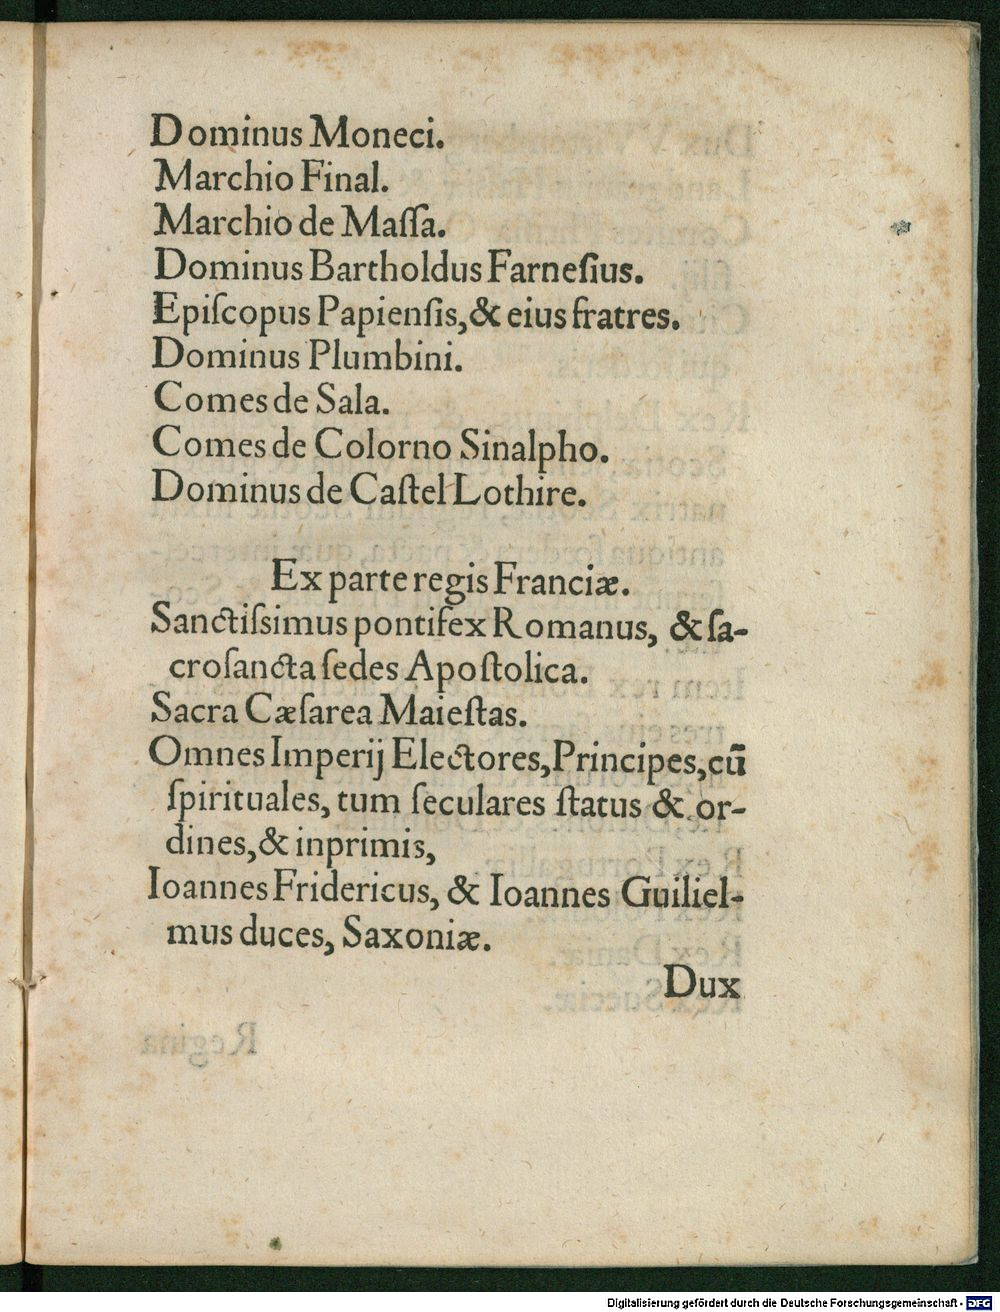 Dominus Moneci.
Marchio Final.
Marchio de Maſſa.
Dominus Bartholdus Farneſius.
Epiſcopus Papienſis, & eius fratres.
Dominus Plumbini.
Comes de Sala.
Comes de Colorno Sinalpho.
Dominus de Caſtel Lothire.
Ex parte regis Franciæ.
Sanctiſsimus pontifex Romanus, & ſa-
croſancta ſedes Apoſtolica.
Sacra Cæſarea Maieſtas.
Omnes Imperij Electores, Principes, cū
ſpirituales, tum ſeculares ſtatus & or-
dines, & inprimis,
Ioannes Fridericus, & Ioannes Guiliel-
mus duces, Saxoniæ.
Dux
Digitalisierung gefördert durch die Deutsche Forschungsgemeinschaft - DFG